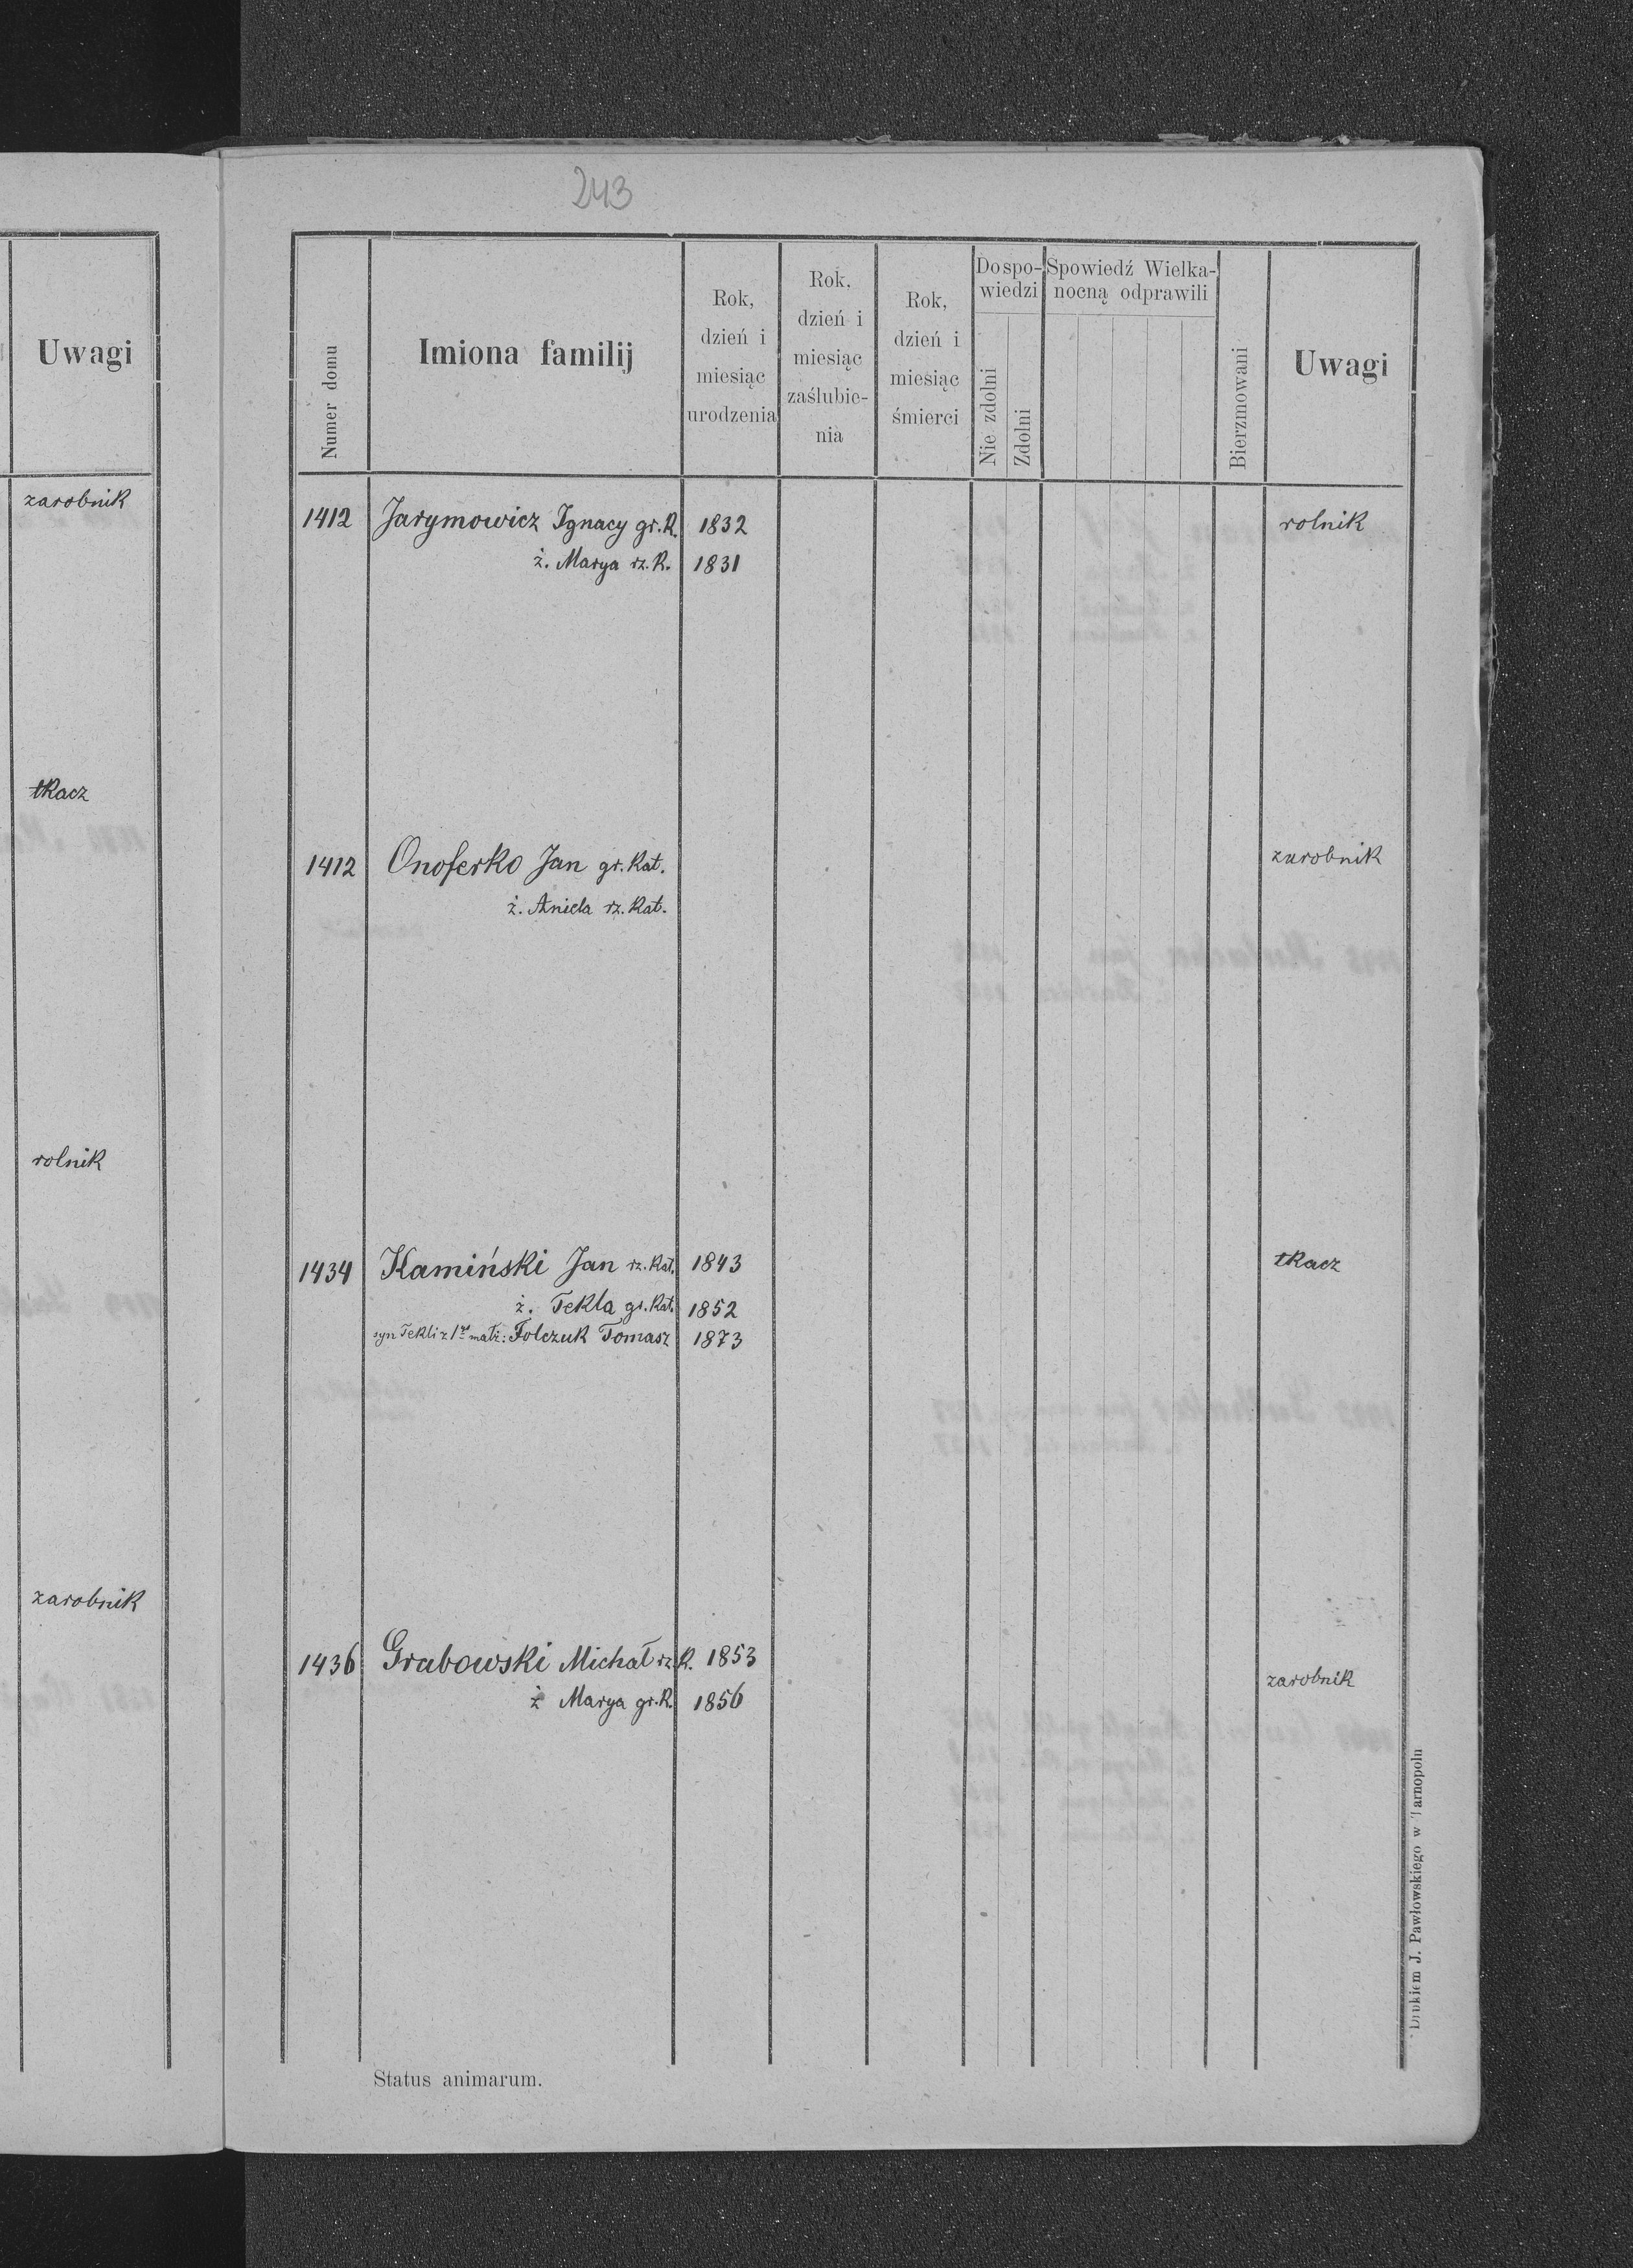 Uwagi
zarobnik
tkacz
rolnik
zarobnik
243
Numer domu
Imiona familij
Rok, dzień i miesiąc urodzenia
Rok, dzień i miesiąc zaślubie-nia
Rok, dzień i miesiąc śmierci
Do spo-wiedzi
Nie zdolni
Zdolni
Spowiedź Wielka-nocną odprawili
Bierzmowani
Uwagi
1412 Jarymowicz Ignacy gr.K. 1832 rolnik
ż. Marya rz.K. 1831
1412 Onoferko Jan gr.Kat. zarobnik
ż. Aniela rz.Kat.
1434 Kamiński Jan rz.Kat. 1843 tkacz
ż. Tekla gr.Kat. 1852
syn Tekli z 1go małż: Folczuk Tomasz 1873
1436 Grabowski Michał rz.K. 1853 zarobnik
ż Marya gr.K. 1856
Status animarum.
Drukiem J. Pawłowskiego w Tarnopoln